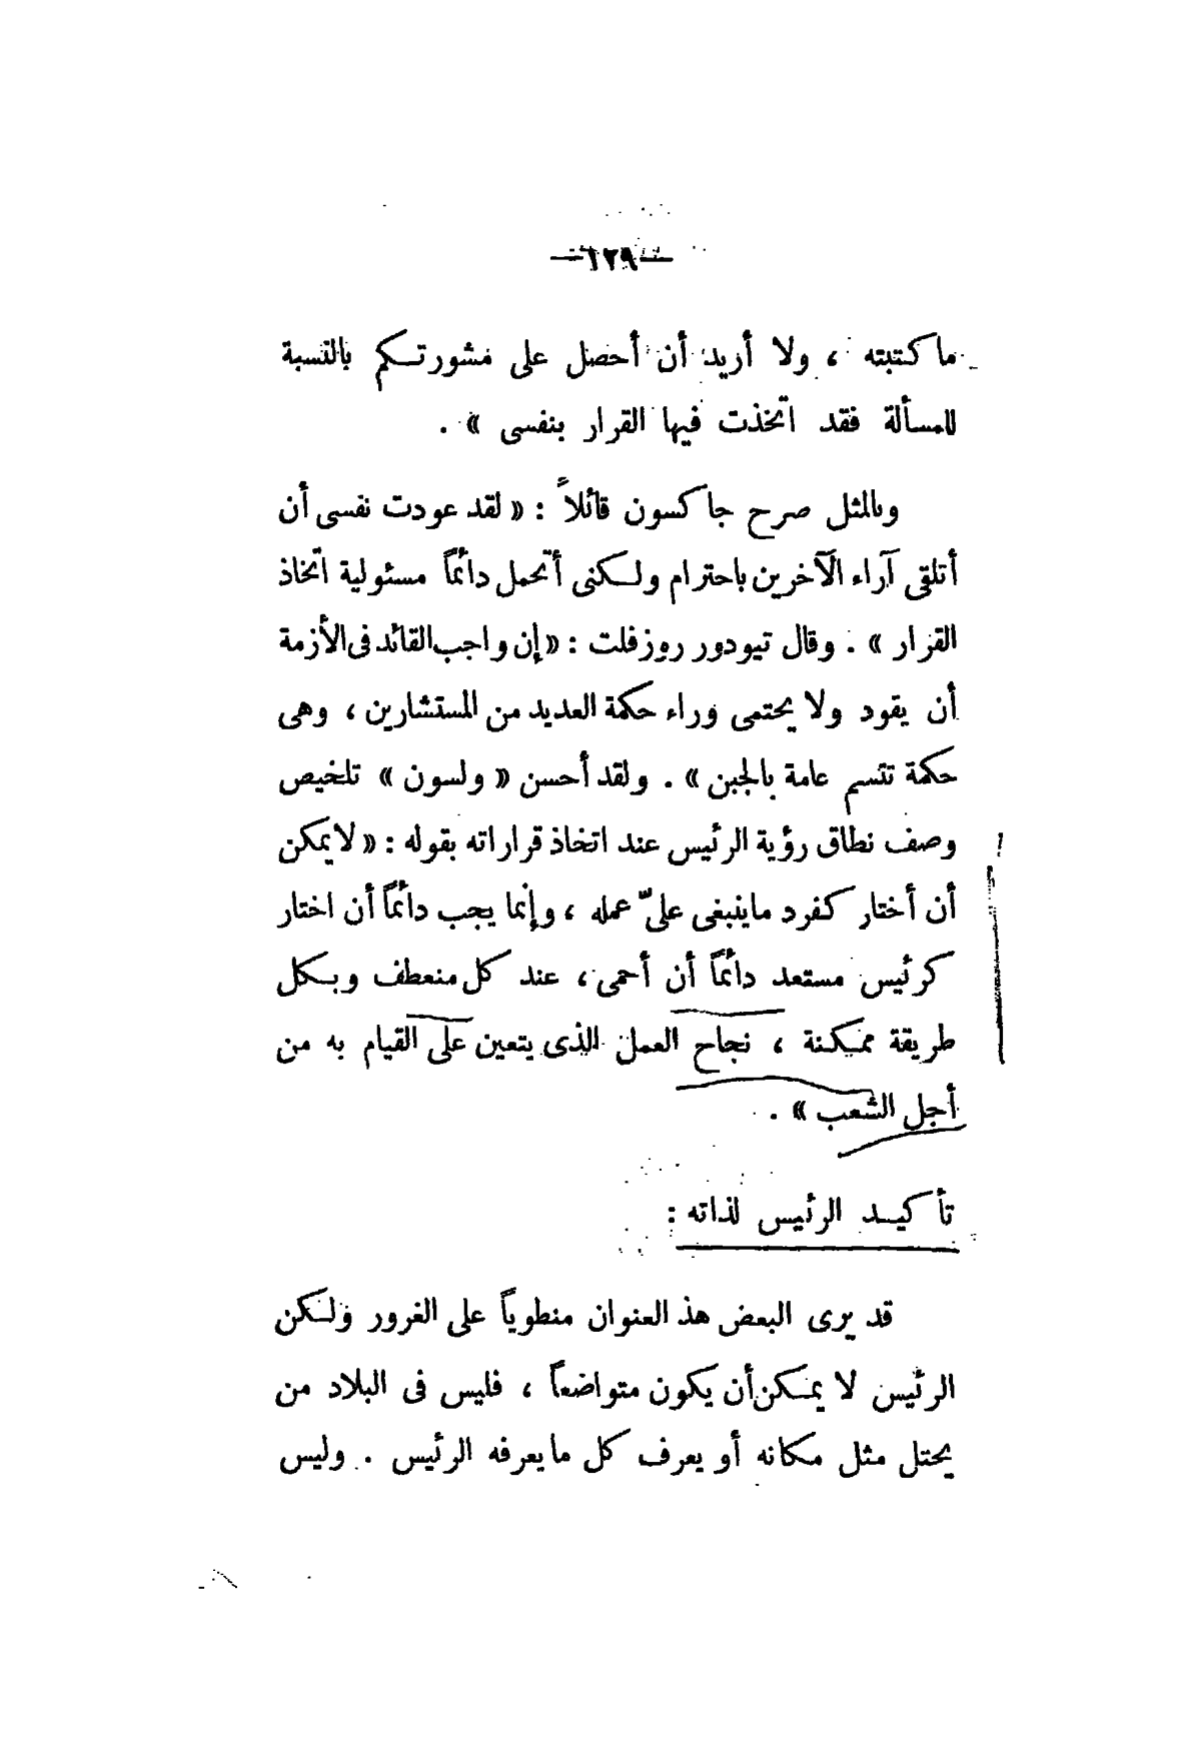 — ١٢٩ —
ما كتبته ، ولا أريد أن أحصل على مشورتكم بالنسبة
للمسألة فقد اتخذت فيها القرار بنفسى » .
وبالمثل صرح جاكسون قائلاً : « لقد عودت نفسى أن
أتلقى آراء الآخرين باحترام ولكنى أتحمل دائماً مسئولية اتخاذ
القرار » . وقال تيودور روزفلت : « إن واجب القائد فى الأزمة
أن يقود ولا يحتمى وراء حكمة العديد من المستشارين ، وهى
حكمة تتسم عامة بالجبن » . ولقد أحسن « ولسون » تلخيص
وصف نطاق رؤية الرئيس عند اتخاذ قراراته بقوله : « لا يمكن
أن أختار كفرد ماينبغى علىّ عمله ، وإنما يجب دائماً أن اختار
كرئيس مستعد دائماً أن أحمى ، عند كل منعطف وبكل
طريقة ممكنة ، نجاح العمل الذى يتعين على القيام به من
أجل الشعب » .
تأكيد الرئيس لذاته :
قد يرى البعض هذ العنوان منطوياً على الغرور ولكن
الرئيس لا يمكن أن يكون متواضعاً ، فليس فى البلاد من
يحتل مثل مكانه أو يعرف كل مايعرفه الرئيس . وليس